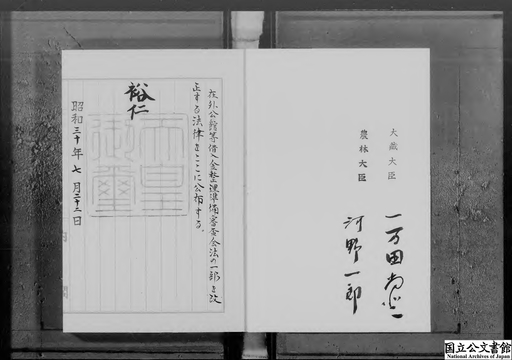 在外公館等借入金整理準備審査会法の一部を改
正する法律をここに公布する。
裕仁
天皇御璽
昭和三十年七月二十三日
大蔵大臣
一万田尚登
農林大臣
河野一郎
国立公文書館
National Archives of Japan